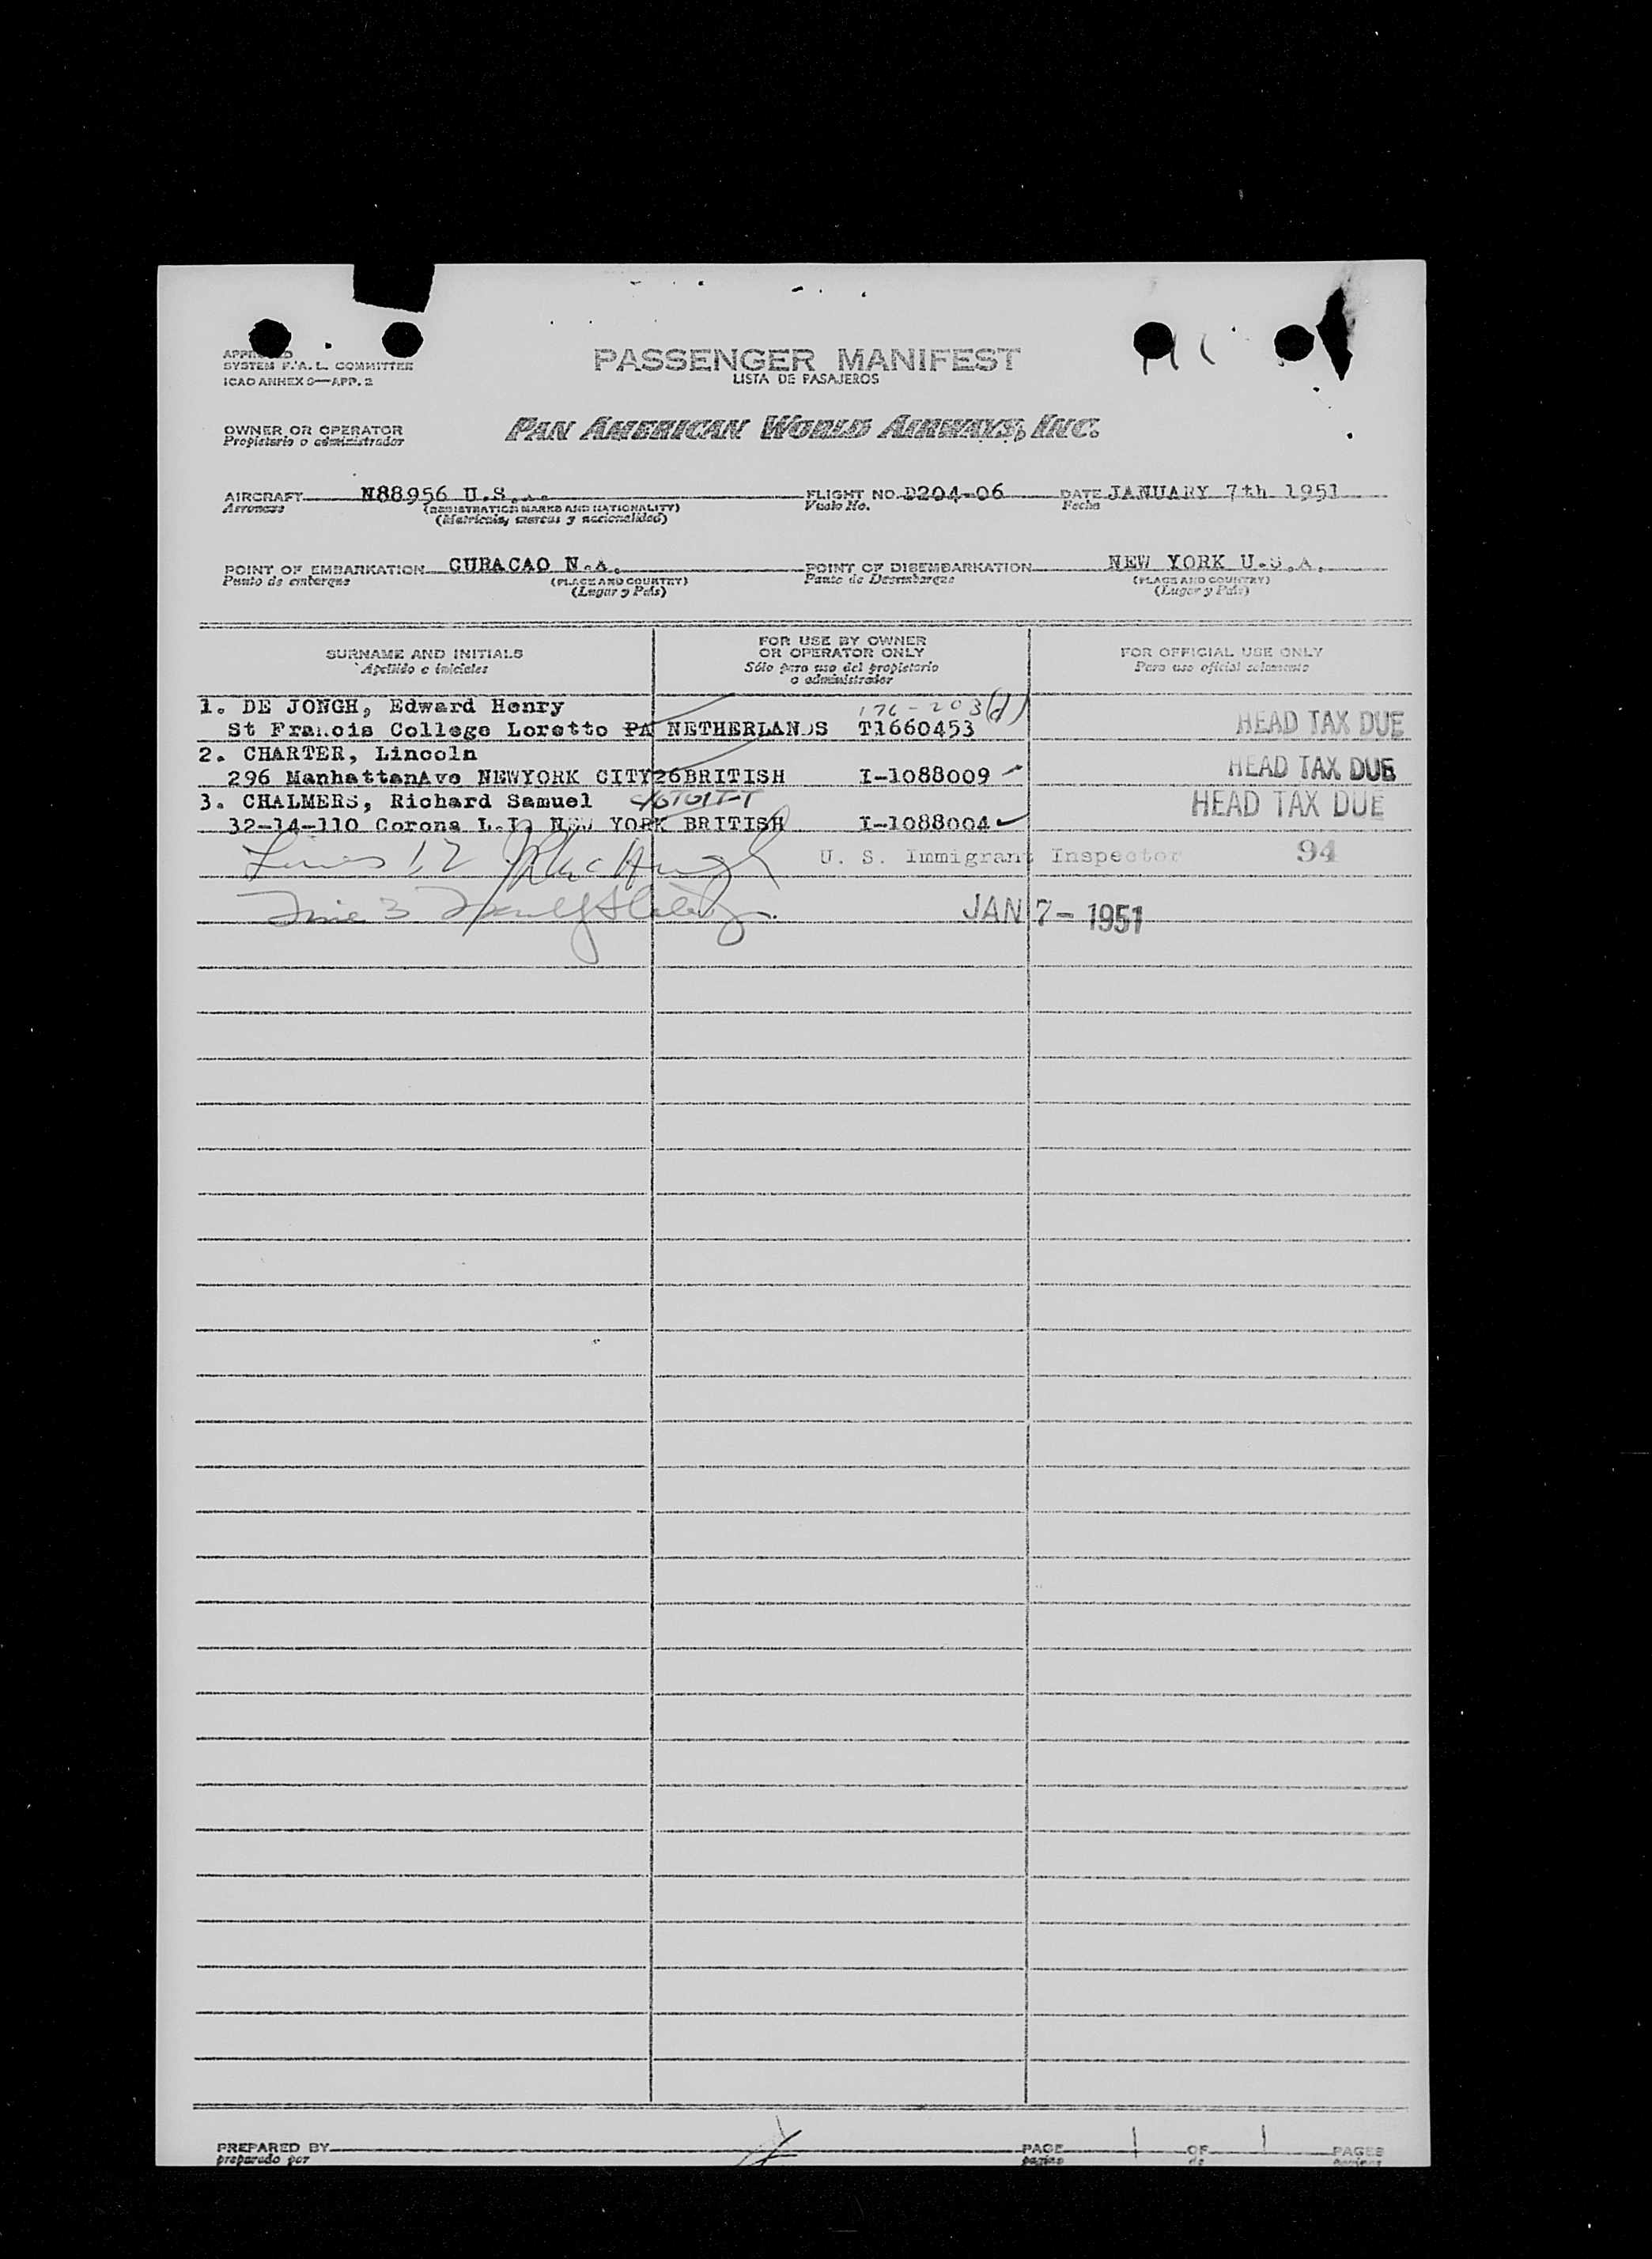 SYSTEM F.A.L. COMMITTEE
ICAO ANNEX 9—APP. 2
PASSENGER MANIFEST
LISTA DE PASAJEROS
OWNER OR OPERATOR
Propietario o administrador
PAN AMERICAN WORLD AIRWAYS, INC.
AIRCRAFT N88956 U.S.A. FLIGHT NO. D204-06 DATE JANUARY 7th 1951
Aeronave (REGISTRATION MARKS AND NATIONALITY) Vuelo No. Fecha
(Matricula, marcas y nacionalidad)
POINT OF EMBARKATION CURACAO N.A. POINT OF DISEMBARKATION NEW YORK U.S.A.
Punto de embarque (PLACE AND COUNTRY) Punto de Desembarque (PLACE AND COUNTRY)
(Lugar y País) (Lugar y País)
SURNAME AND INITIALS
Apellido e iniciales
FOR USE BY OWNER
OR OPERATOR ONLY
Sólo para uso del propietario
o administrador
FOR OFFICIAL USE ONLY
Para uso oficial solamente
1. DE JONGH, Edward Henry 176-203(d)
St Francis College Loretto PA NETHERLANDS T1660453 HEAD TAX DUE
2. CHARTER, Lincoln
296 ManhattanAve NEWYORK CITY26BRITISH I-1088009 HEAD TAX DUE
3. CHALMERS, Richard Samuel
32-14-110 Corona L.I. NEW YORK BRITISH I-1088004 HEAD TAX DUE
Lines 1,2 U. S. Immigrant Inspector 94
Line 3 JAN 7- 1951
PREPARED BY PAGE 1 OF 1 PAGES
preparado por pagina de paginas